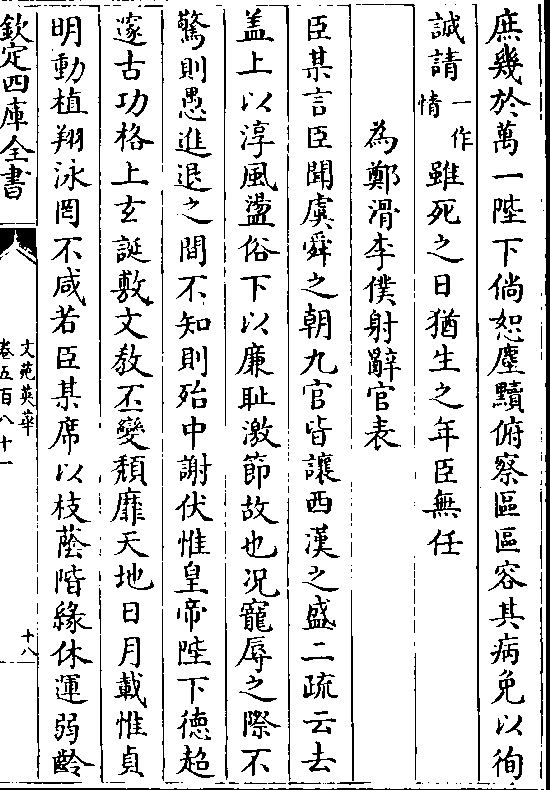 庶幾於萬一陛下倘恕塵黷俯察區區容其病免以徇
誠請一作情雖死之日猶生之年臣無任
為鄭滑李僕射辭官表
臣某言臣聞虞舜之朝九官皆讓西漢之盛二疏云去
盖上以淳風盪俗下以廉耻激節故也况寵辱之際不
驚則愚進退之間不知則殆中謝伏惟皇帝陛下德超
邃古功格上玄誕敷文敎丕變頹靡天地日月載惟貞
明動植翔泳罔不咸若臣某席以枝蔭階緣休運弱齡
欽定四庫全書
文苑英華
卷五百八十一
十八